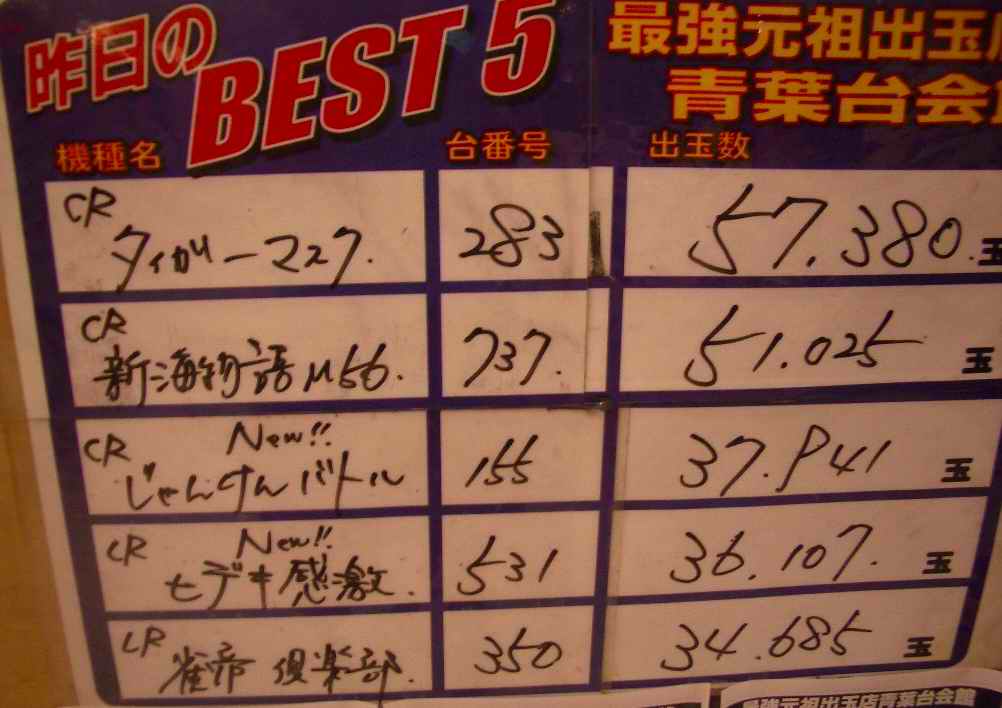 昨日の
BEST 5
最強元祖出玉店
青葉台会館
機種名 台番号 出玉数
CR
タイガーマスク. 283 57.380.玉
CR
新海物語M56. 737. 51.025 玉
CR New!!
じゃんけんバトル 155 37.941 玉
CR New!!
ヒデキ感激. 531 36.107. 玉
CR
雀帝 倶楽部. 350 34.685 玉
最強元祖出玉店青葉台会館